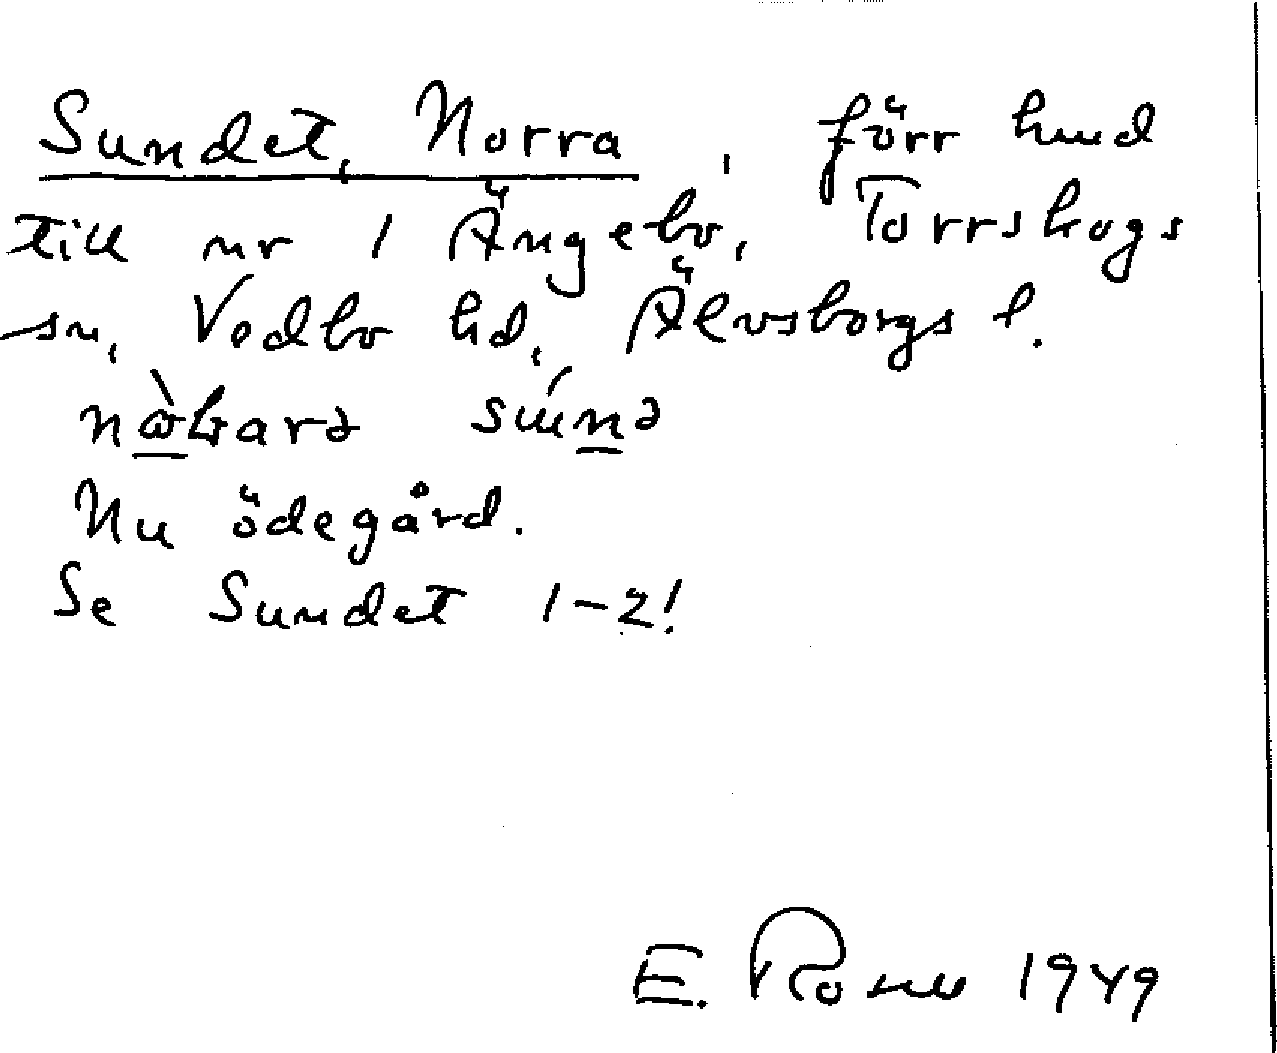 Sundet, Norra, förr hmd
till nr 1 Ängebo, Torrskogs
sn, Vedbo hd, Älvsborgs l.
sú
Nu ödegård.
Se Sundet 1-2!
E. Rosell 1949